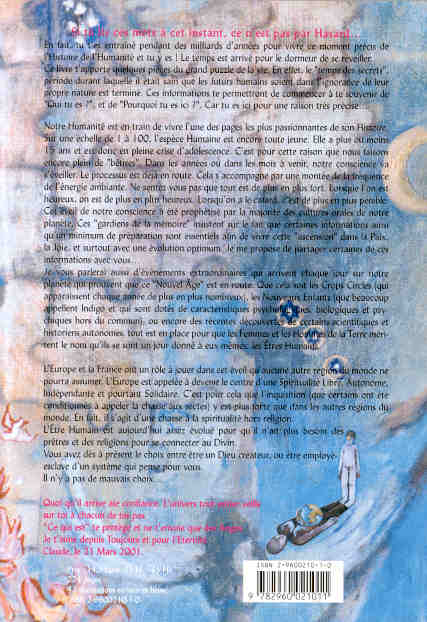 Si tu lis ces mots à cet instant, ce n'est pas par Hasard...
En fait, tu t'es entraîné pendant des milliards d'années pour vivre ce moment précis de
l'Histoire de l'Humanité et tu y es ! Le temps est arrivé pour le dormeur de se réveiller.
Ce livre t'apporte quelques pièces du grand puzzle de la vie. En effet, le "temps des secrets",
période durant laquelle il était sain que les futurs humains soient dans l'ignorance de leur
propre nature est terminé. Ces informations te permettront de commencer à te souvenir de
"Qui tu es ?", et de "Pourquoi tu es ici ?". Car tu es ici pour une raison très précise...
Notre Humanité est en train de vivre l'une des pages les plus passionnantes de son Histoire.
Sur une échelle de 1 à 100, l'espèce Humaine est encore toute jeune. Elle a plus ou moins
15 ans et est donc en pleine crise d'adolescence. C'est pour cette raison que nous faisons
encore plein de "bêtises". Dans les années ou dans les mois à venir, notre conscience va
s'éveiller. Le processus est déjà en route. Cela s'accompagne par une montée de la fréquence
de l'énergie ambiante. Ne sentez-vous pas que tout est de plus en plus fort. Lorsque l'on est
heureux, on est de plus en plus heureux. Lorsqu'on a le cafard, c'est de plus en plus pénible.
Cet éveil de notre conscience a été prophétisé par la majorité des cultures orales de notre
planète. Ces "gardiens de la mémoire" insistent sur le fait que certaines informations ainsi
qu'un minimum de préparation sont essentiels afin de vivre cette "ascension" dans la Paix,
la Joie, et surtout avec une évolution optimum. Je me propose de partager certaines de ces
informations avec vous.
Je vous parlerai aussi d'événements extraordinaires qui arrivent chaque jour sur notre
planète qui prouvent que ce "Nouvel Age" est en route. Que cela soit les Crops Circles (qui
apparaissent chaque année de plus en plus nombreux), les Nouveaux Enfants (que beaucoup
appellent Indigo et qui sont dotés de caractéristiques psychologiques, biologiques et psy-
chiques hors du commun), ou encore des récentes découvertes de certains scientifiques et
historiens autonomes, tout est en place pour que les Femmes et les Hommes de la Terre méri-
tent le nom qu'ils se sont un jour donné à eux mêmes, les Êtres Humains.
L'Europe et la France ont un rôle à jouer dans cet éveil qu'aucune autre région du monde ne
pourra assumer. L'Europe est appelée à devenir le centre d'une Spiritualité Libre, Autonome,
Indépendante et pourtant Solidaire. C'est pour cela que l'inquisition (que certains ont été
conditionnés à appeler la chasse aux sectes) y est plus forte que dans les autres régions du
monde. En fait, il s'agit d'une chasse à la spiritualité hors religion.
L'Être Humain est aujourd'hui assez évolué pour qu'il n'ait plus besoin des
prêtres et des religions pour se connecter au Divin.
Vous avez dès à présent le choix entre être un Dieu créateur, ou être employé-
esclave d'un système qui pense pour vous.
Il n'y a pas de mauvais choix...
Quoi qu'il arrive aie confiance. L'univers tout entier veille
sur toi à chacun de tes pas.
"Ce qui est" te protège et ne t'envoie que des Anges.
Je t'aime depuis Toujours et pour l'Eternité.
Claude, le 21 Mars 2001.
illustrations en noir et blanc
ISBN 2-9600210-1-0
ISBN 2-9600210-1-0
9 782960 021011